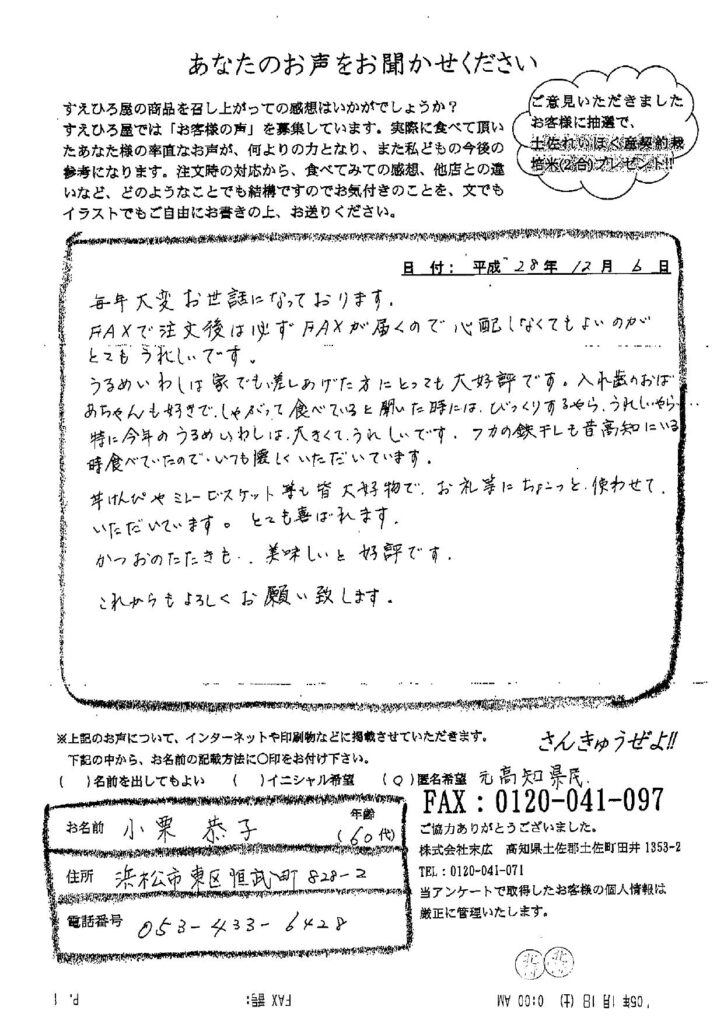 あなたのお声をお聞かせください
すえひろ屋の商品を召し上がっての感想はいかがでしょうか？
すえひろ屋では「お客様の声」を募集しています。実際に食べて頂い
たあなた様の率直なお声が、何よりの力となり、また私どもの今後の
参考になります。注文時の対応から、食べてみての感想、他店との違
いなど、どのようなことでも結構ですのでお気付きのことを、文でも
イラストでもご自由にお書きの上、お送りください。
ご意見いただきました
お客様に抽選で、
土佐れいほく産契約栽
培米(2合)プレゼント!!
日 付： 平成 28年 12月 6日
毎年大変お世話になっております。
FAXで注文後は必ずFAXが届くので心配しなくてもよいのが
とてもうれしいです。
うるめいわしは家でも、差しあげた方にとっても大好評です。入れ歯のおば
あちゃんも好きで、しゃがって食べていると聞いた時には、びっくりするやら、うれしいやら…
特に今年のうるめいわしは、大きくて、うれしいです。フカの鉄干しも昔高知にいる
時食べていたので、いつも懐しくいただいています。
芋けんぴやミレービスケット等も皆大好物で、お礼等にちょこっと、使わせて、
いただいています。とても喜ばれます。
かつおのたたきも、美味しいと好評です。
これからもよろしくお願い致します。
※上記のお声について、インターネットや印刷物などに掲載させていただきます。
下記の中から、お名前の記載方法に○印をお付け下さい。
( )名前を出してもよい ( )イニシャル希望 (○)匿名希望 元高知県民
さんきゅうぜよ!!
お名前 小栗 恭子 年齢 (60代)
住所 浜松市東区恒武町828-2
電話番号 053-433-6428
FAX：0120-041-097
ご協力ありがとうございました。
株式会社末広 高知県土佐郡土佐町田井 1353-2
TEL：0120-041-071
当アンケートで取得したお客様の個人情報は
厳正に管理いたします。
'05年1月1日(土) 0:00 AM FAX 番: P. 1